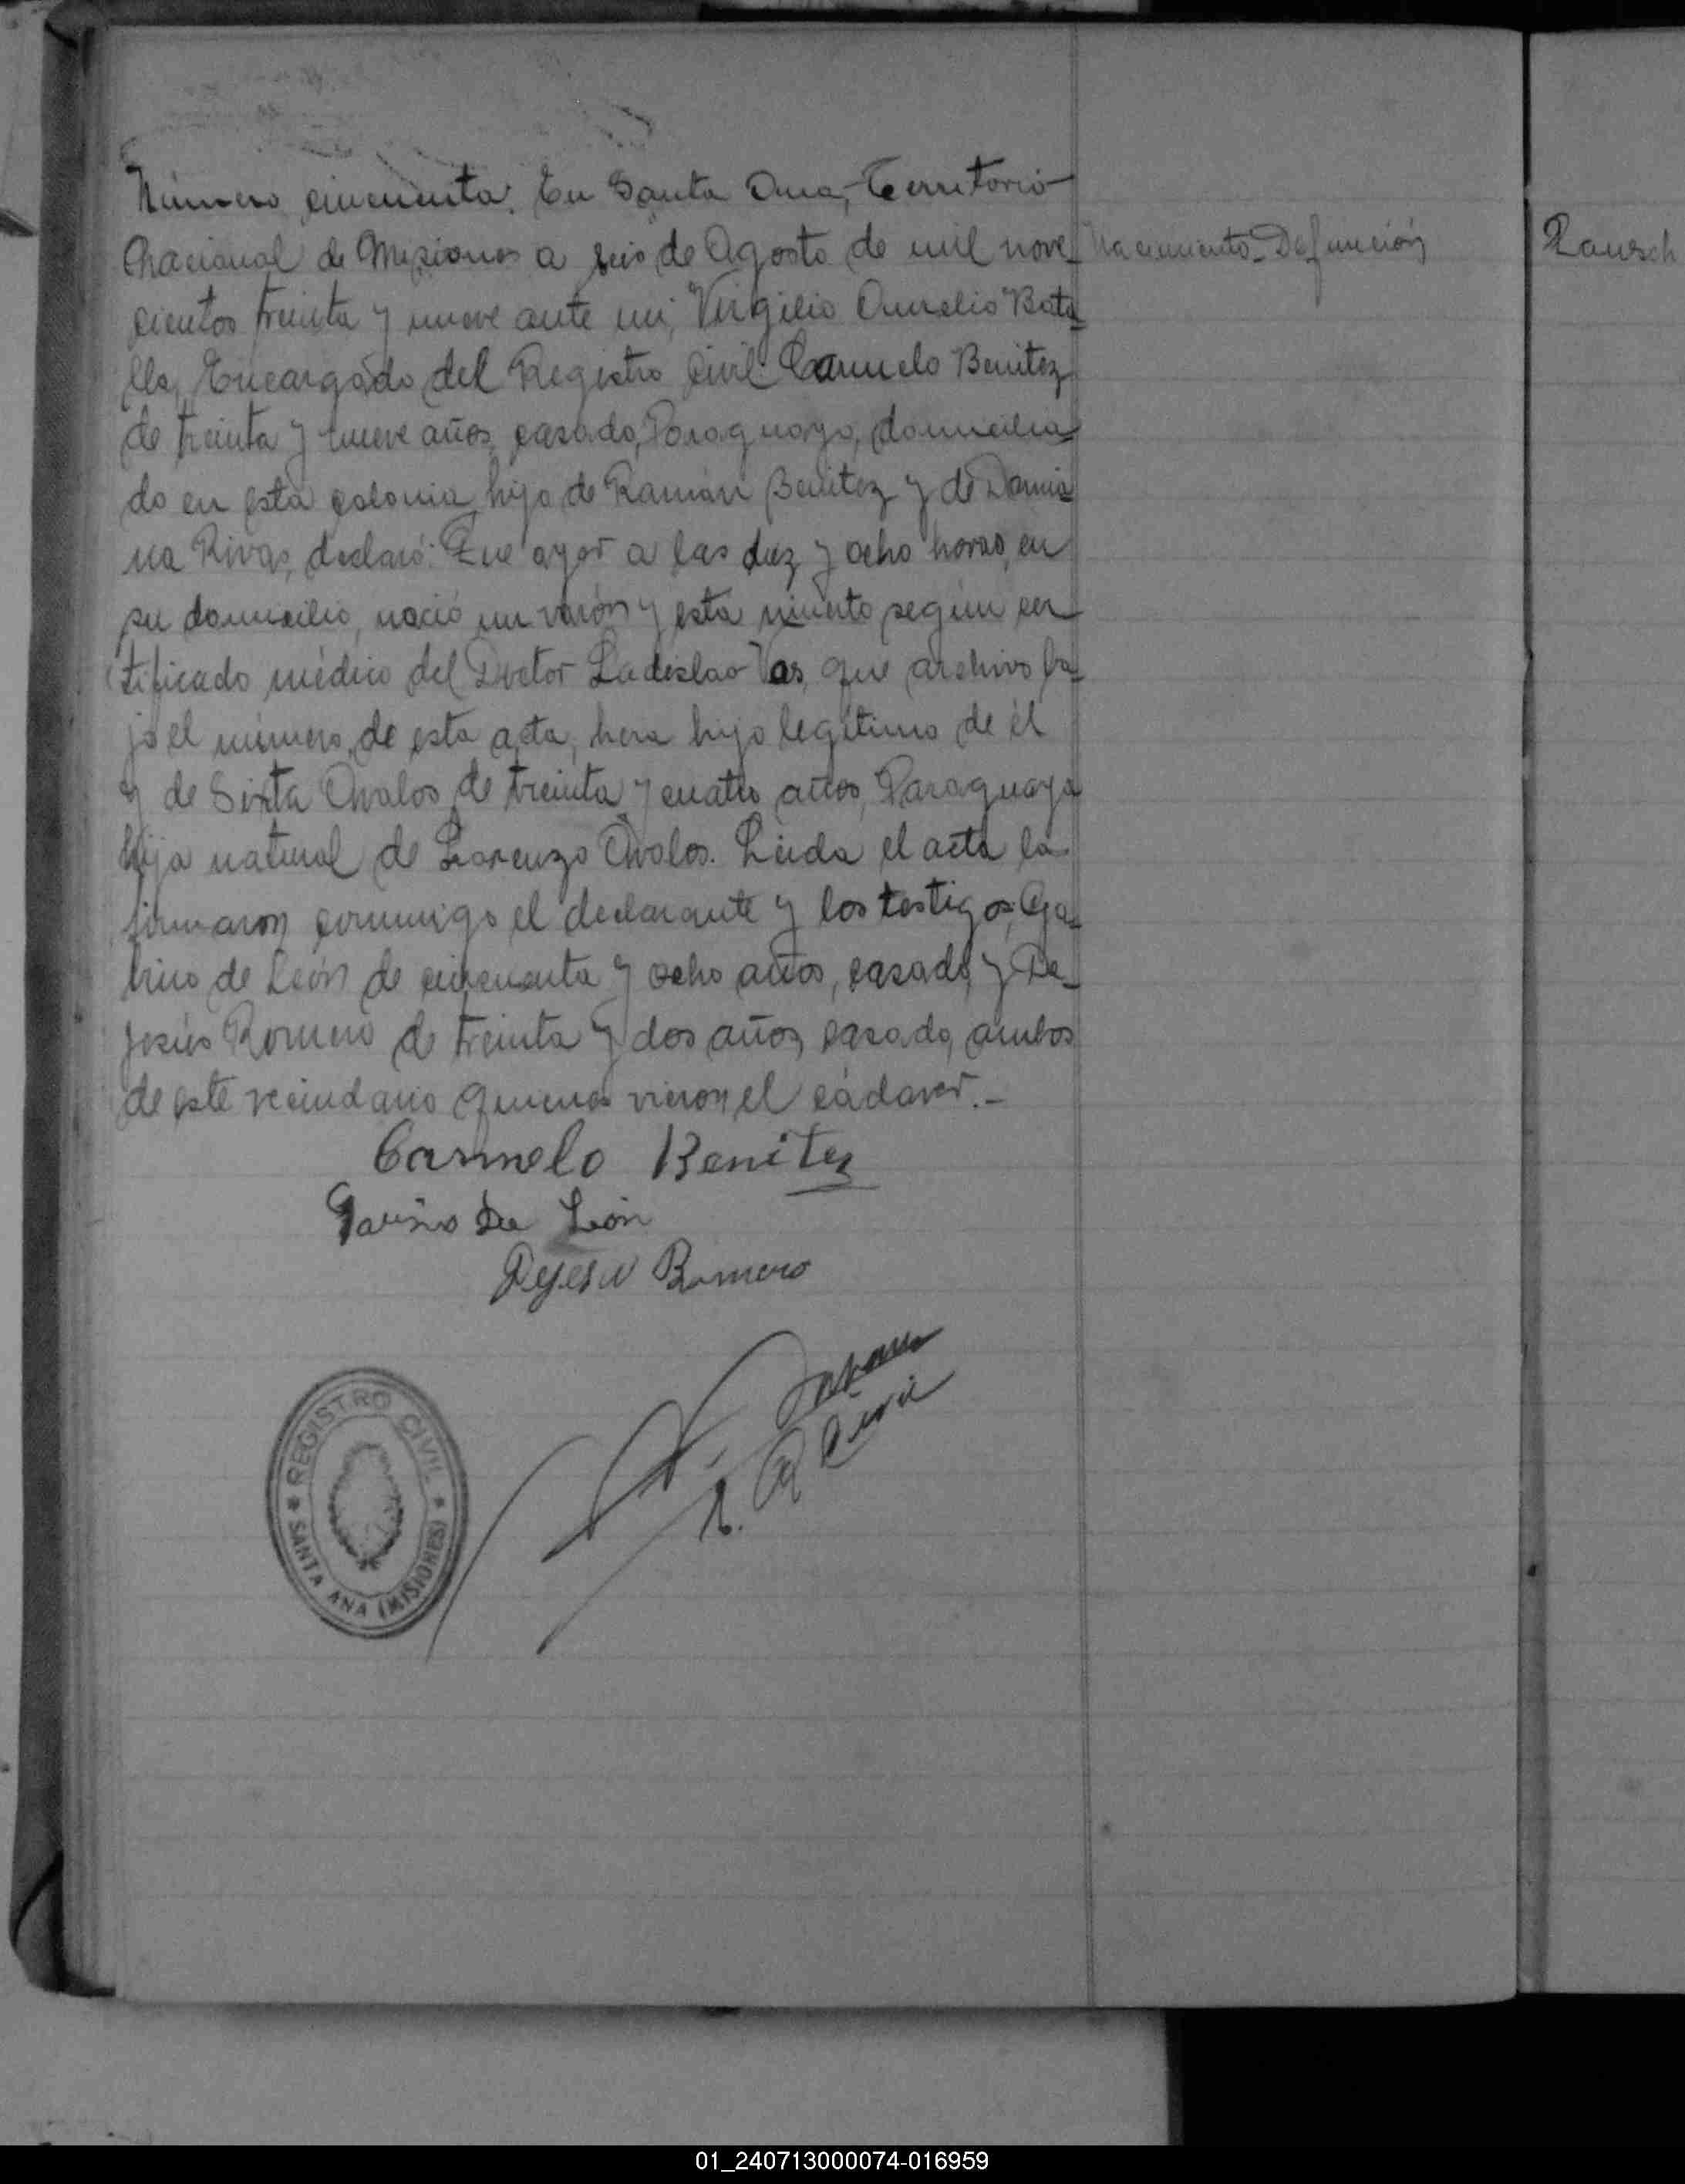 Número cincuenta. En Santa Ana, Territorio
Nacional de Misiones a seis de Agosto de mil nove
Nacimiento-Defunción
Rausch
cientos treinta y nueve ante mi, Virgilio Aurelio Bata
lla, Encargado del Registro Civil: Carmelo Benitez
de treinta y nueve años, casado, Paraguayo, domicilia
do en esta colonia, hijo de Ramón Benitez y de Damia
na Rivas, declaró: Que ayer a las diez y ocho horas, en
su domicilio, nació un varón y esta muerto según cer
tificado médico del Doctor Ladislao Vas, que archivo ba
jo el número de esta acta, hera hijo legítimo de él
y de Sixta Ovalos de treinta y cuatro años, Paraguaya
hija natural de Lorenzo Ovalos. Leida el acta la
firmaron conmigo el declarante y los testigos, Ga
bino de León de cincuenta y ocho años, casado, y De
Jesús Romero de treinta y dos años, casado, ambos
de este vecindario quienes vieron el cádaver.-
Carmelo Benitez
Gavino De León
Dejesu Romero
REGISTRO CIVIL
SANTA ANA (MISIONES)
01_240713000074-016959